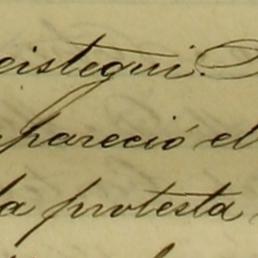 eistegui.
pareció el
la protesta